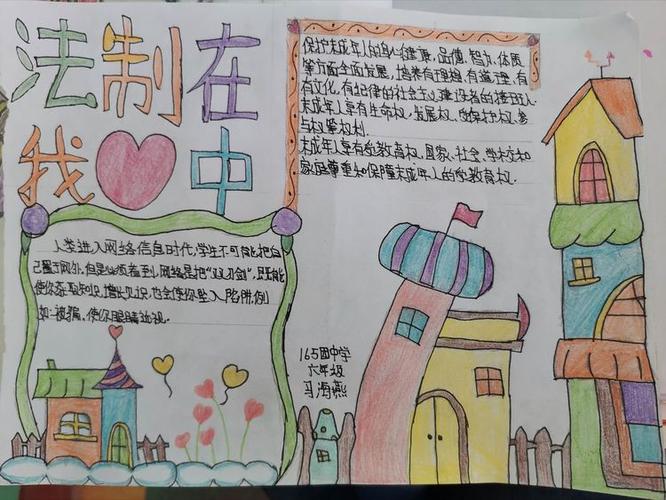 法制在
我中
保护未成年人的身心健康,品德、智力、体质
等方面全面发展,培养有理想,有道理,有
有文化,有纪律的社会主义建设者的接班人.
未成年人享有生命权,发展权,受保护权,参
与权等权利.
未成年人享有受教育权,国家、社会、学校和
家庭尊重和保障未成年人的受教育权.
人类进入网络信息时代,学生不可能把自
己置于网外,但是必须看到,网络是把"双刃剑",既能
使你获取知识,增长见识,也会使你坠入陷阱,例
如:被骗,使你眼睛近视.
165团中学
六年级
马海燕